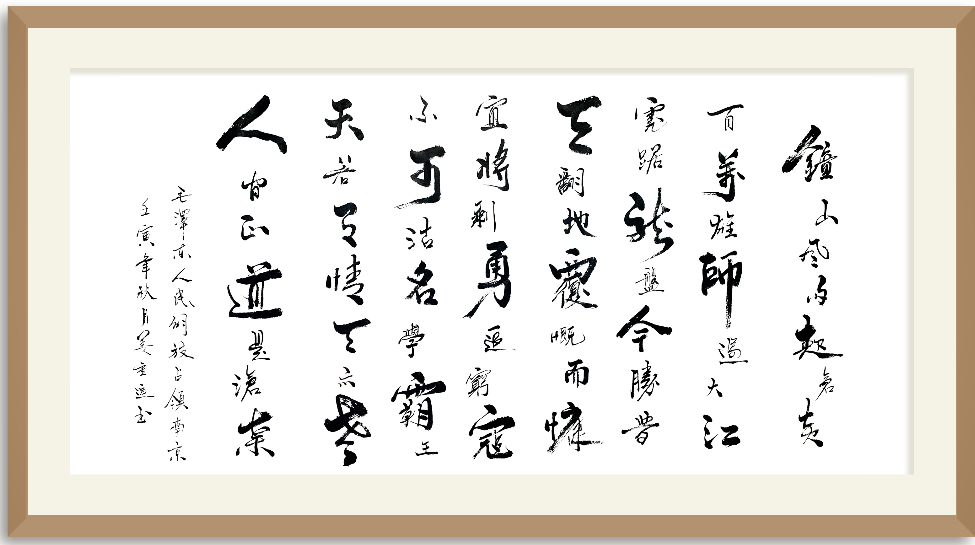 鐘山风雨起倉黃
百萬雄師過大江
虎踞龍盤今勝昔
天翻地覆慨而慷
宜將剩勇追窮寇
不可沽名學霸王
天若有情天亦老
人间正道是滄桒
毛澤东人民解放占領南京
壬寅年秋月书